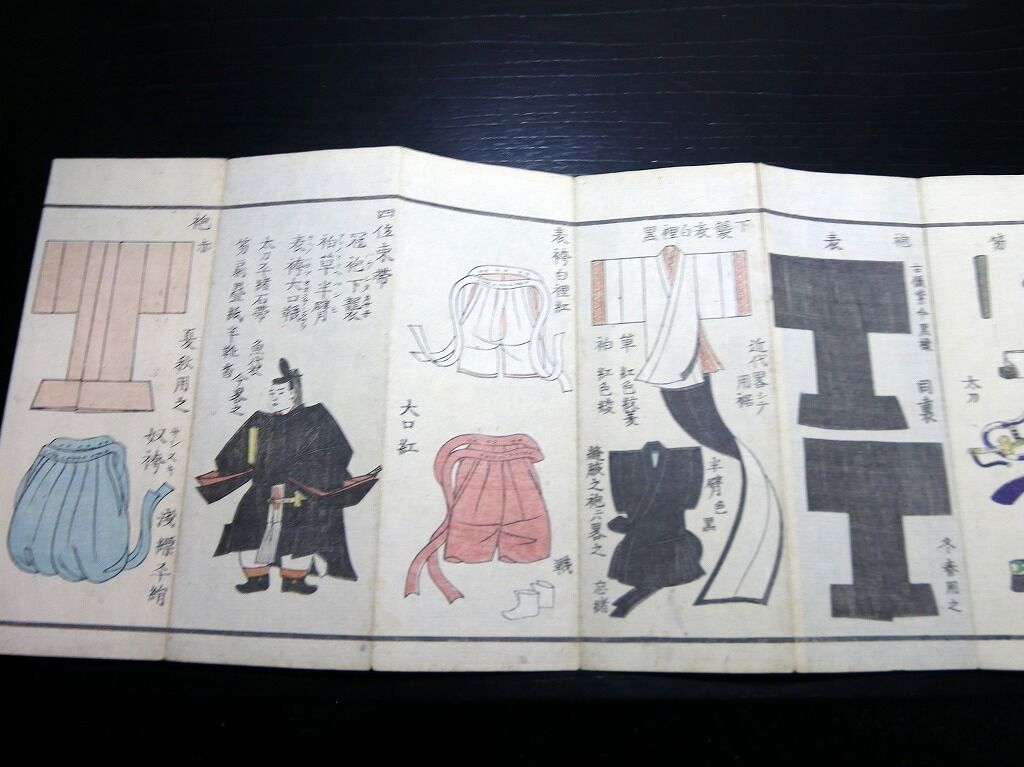 笏
太刀
袍
表
冬春用之
下襲表白裡黒
近代畧シテ
用裾
単
袖
紅色綾
半臂色
黒
忘緒
表袴白裡紅
大口紅
襪
四位束帯
冠袍下襲
袙単半臂
表袴大口襪
太刀平緒石帯
魚袋
笏扇畳紙
今畧之
袍赤
夏秋用之
奴袴
サシヌキ
浅縹平絹